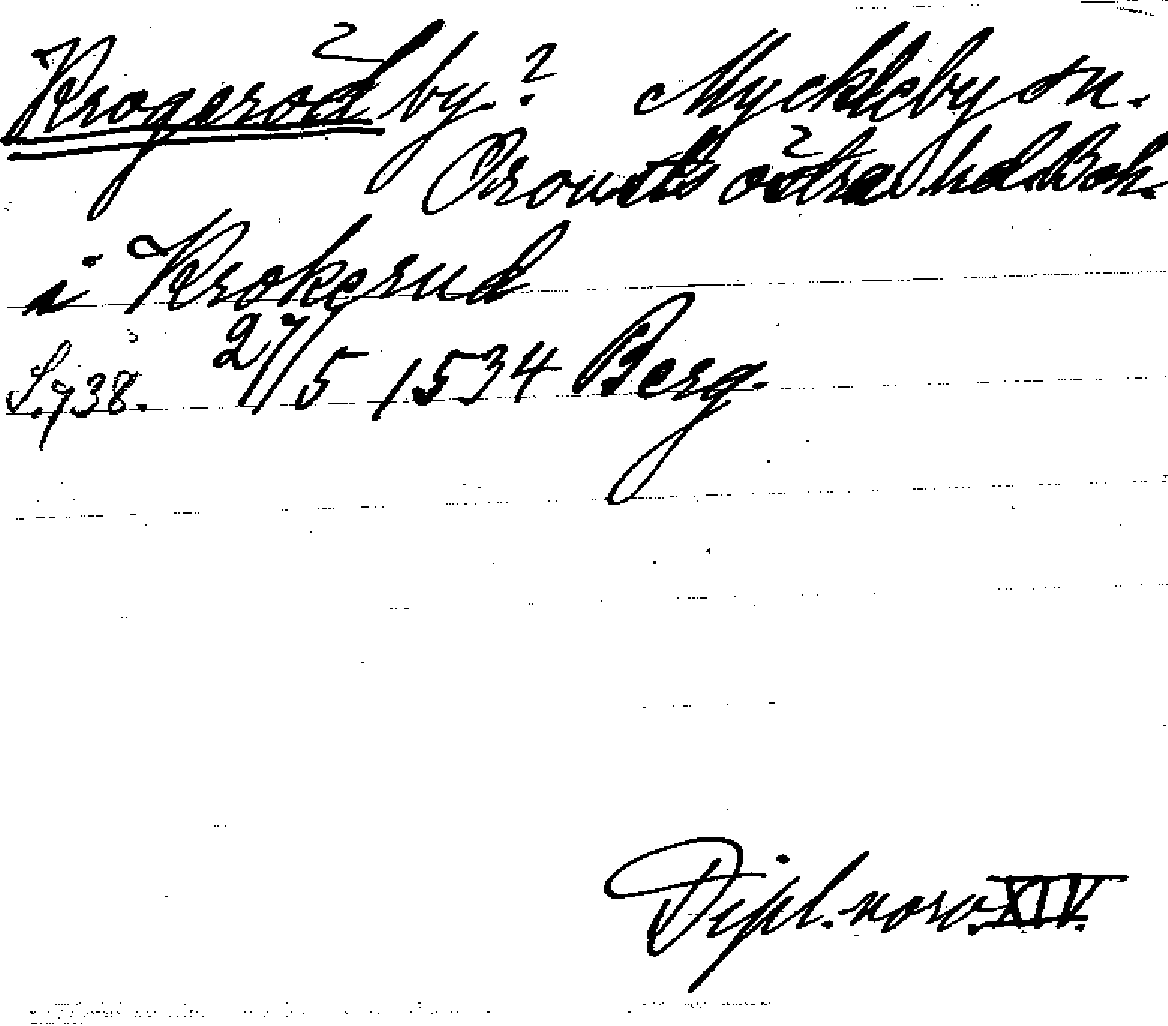 Krogeröd by? Myckleby sn.
Orousts östra hd. Boh.
i Krokerud
S. 738. 27/5 1534 Berg.
Dipl. norv. XIV.